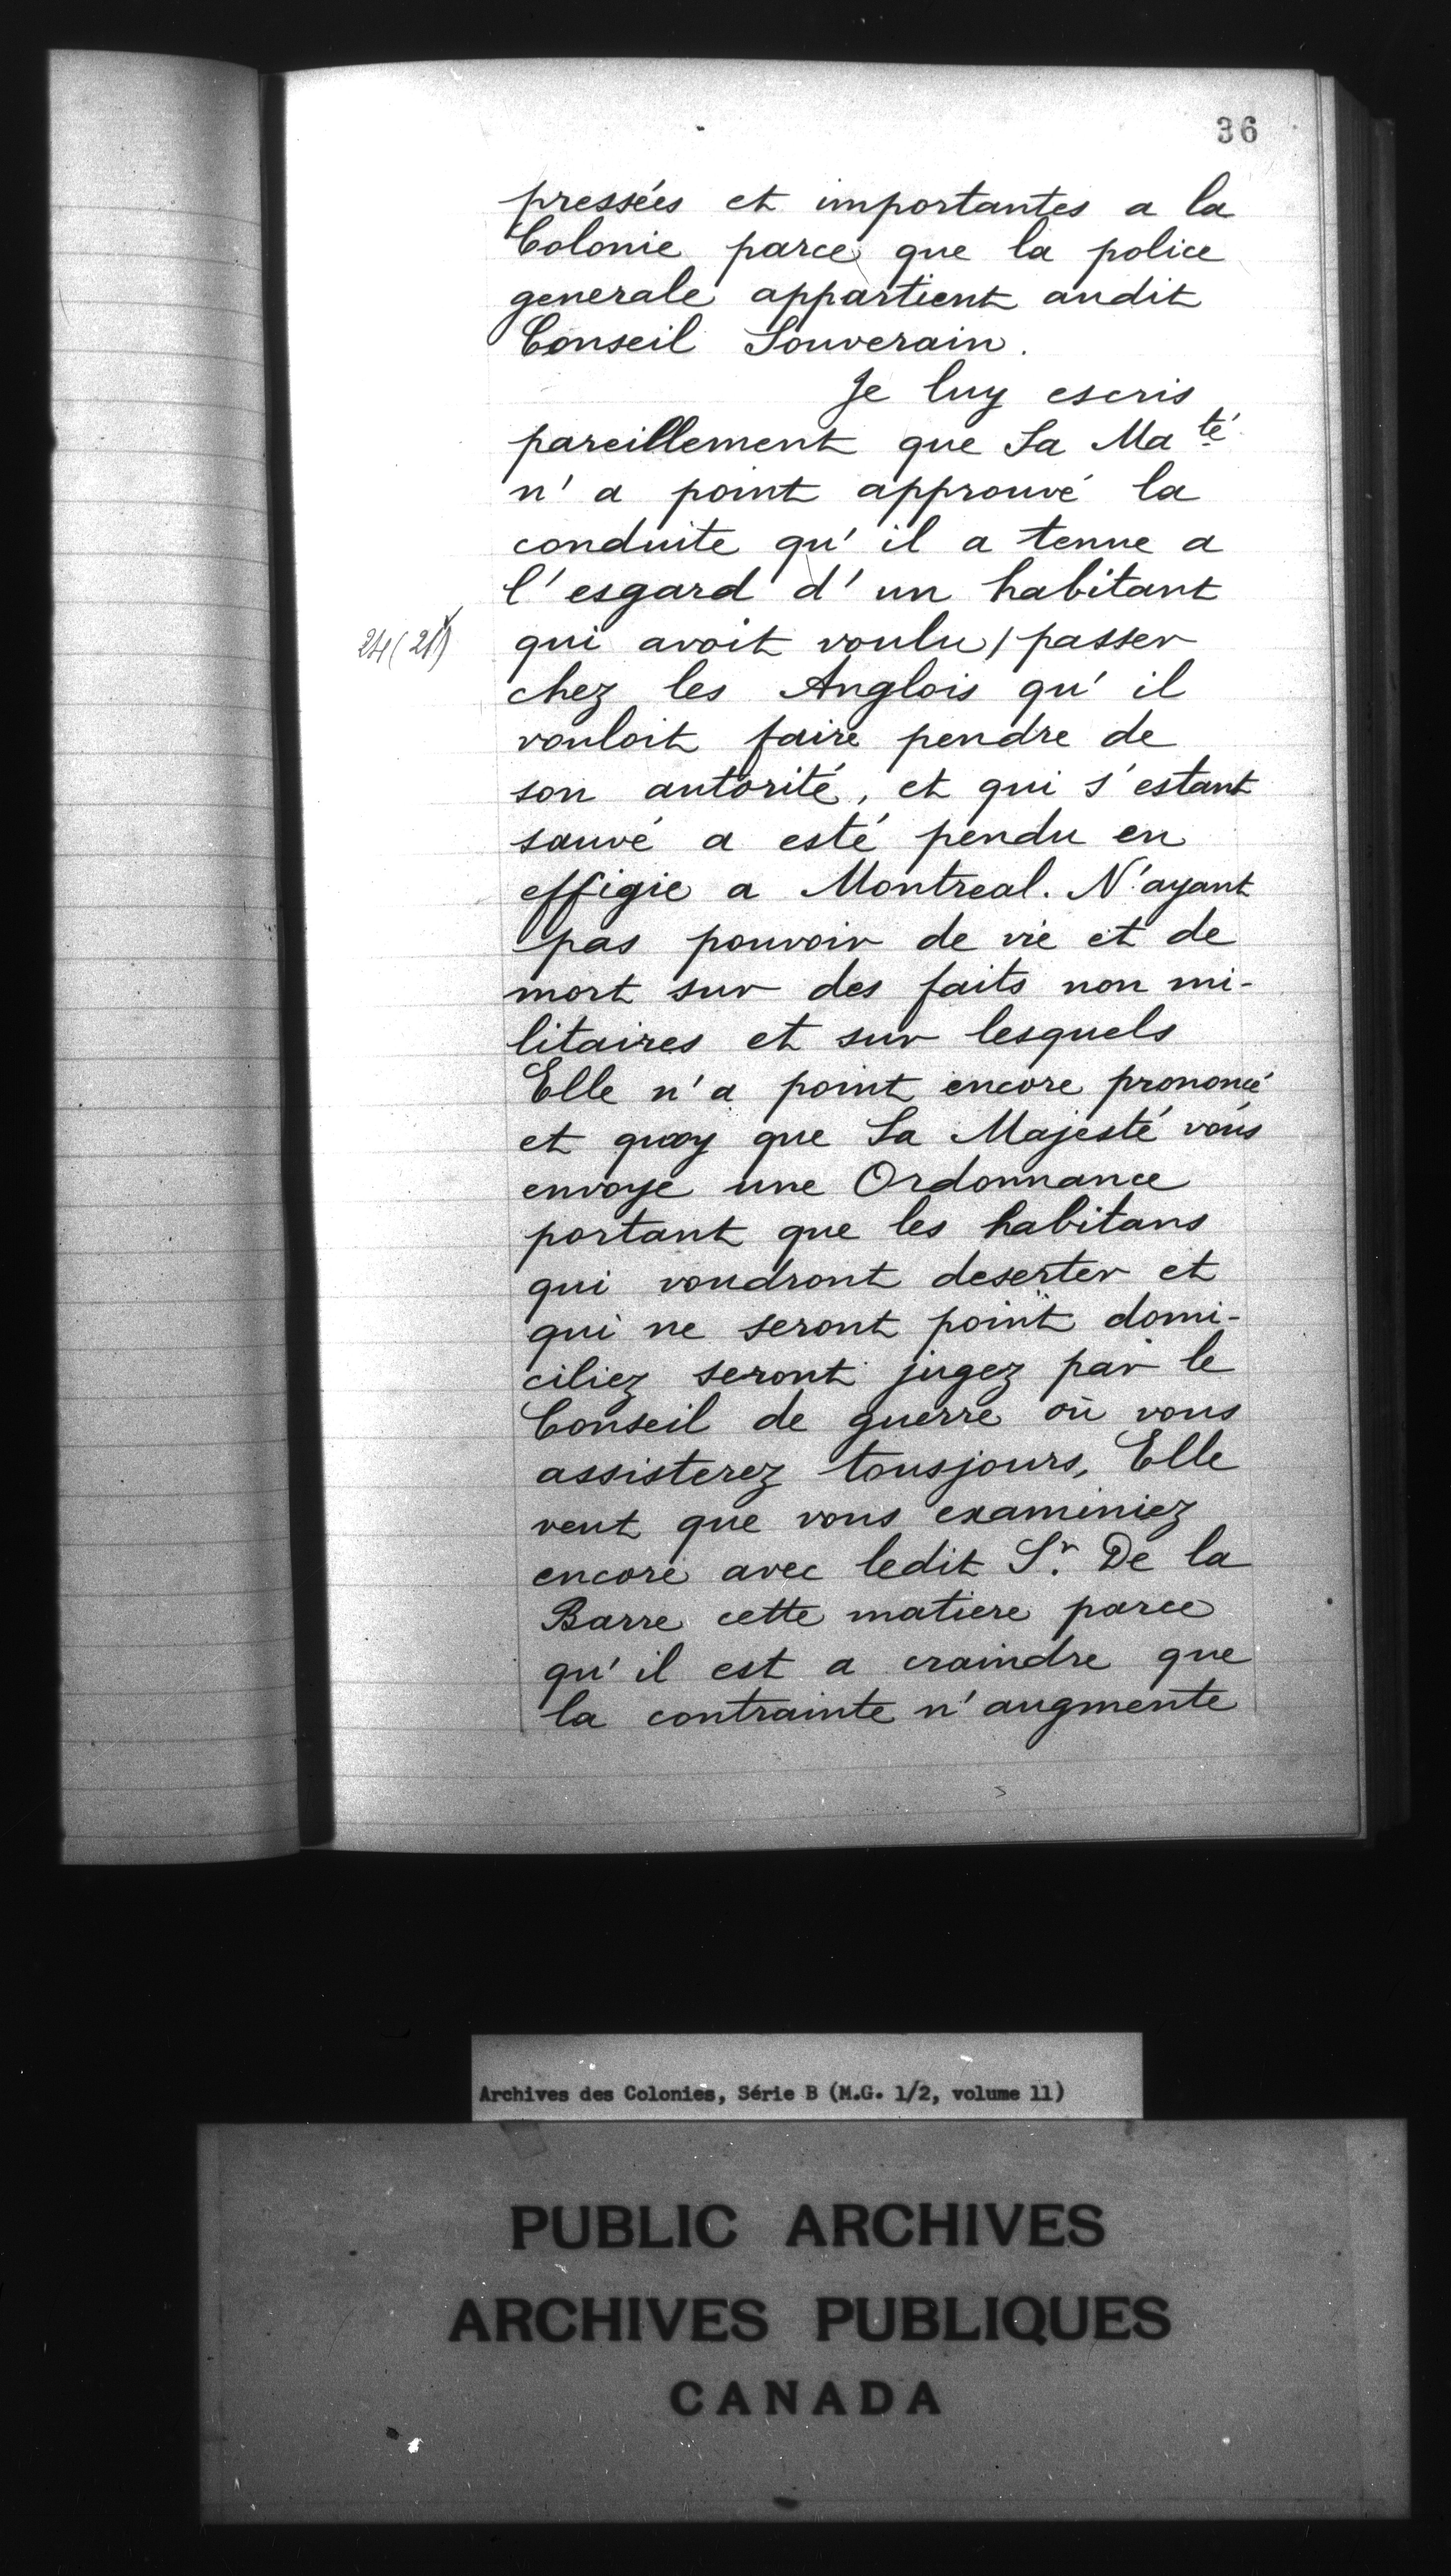 36
pressées et importantes a la
Colonie parce que la police
generale appartient audit
Conseil Souverain.
Je luy escris
pareillement que Sa Ma té
n'a point approuvé la
conduite qu'il a tenue a
l'esgard d'un habitant
qui avoit voulu / passer
chez les Anglois qu'il
vouloit faire pendre de
son autorité, et qui s'estant
sauvé a esté pendu en
effigie a Montreal. N'ayant
pas pouvoir de vie et de
mort sur des faits non mi-
litaires et sur lesquels
Elle n'a point encore prononcé
et quoy que Sa Majesté vous
envoye une Ordonnance
portant que les habitans
qui voudront deserter et
qui ne seront point domi-
ciliez seront jugez par le
Conseil de guerre où vous
assisterez tousjours, Elle
veut que vous examiniez
encore avec ledit Sr. De la
Barre cette matiere parce
qu'il est a craindre que
la contrainte n'augmente
Archives des Colonies, Série B (M.G. 1/2, volume 11)
PUBLIC ARCHIVES
ARCHIVES PUBLIQUES
CANADA